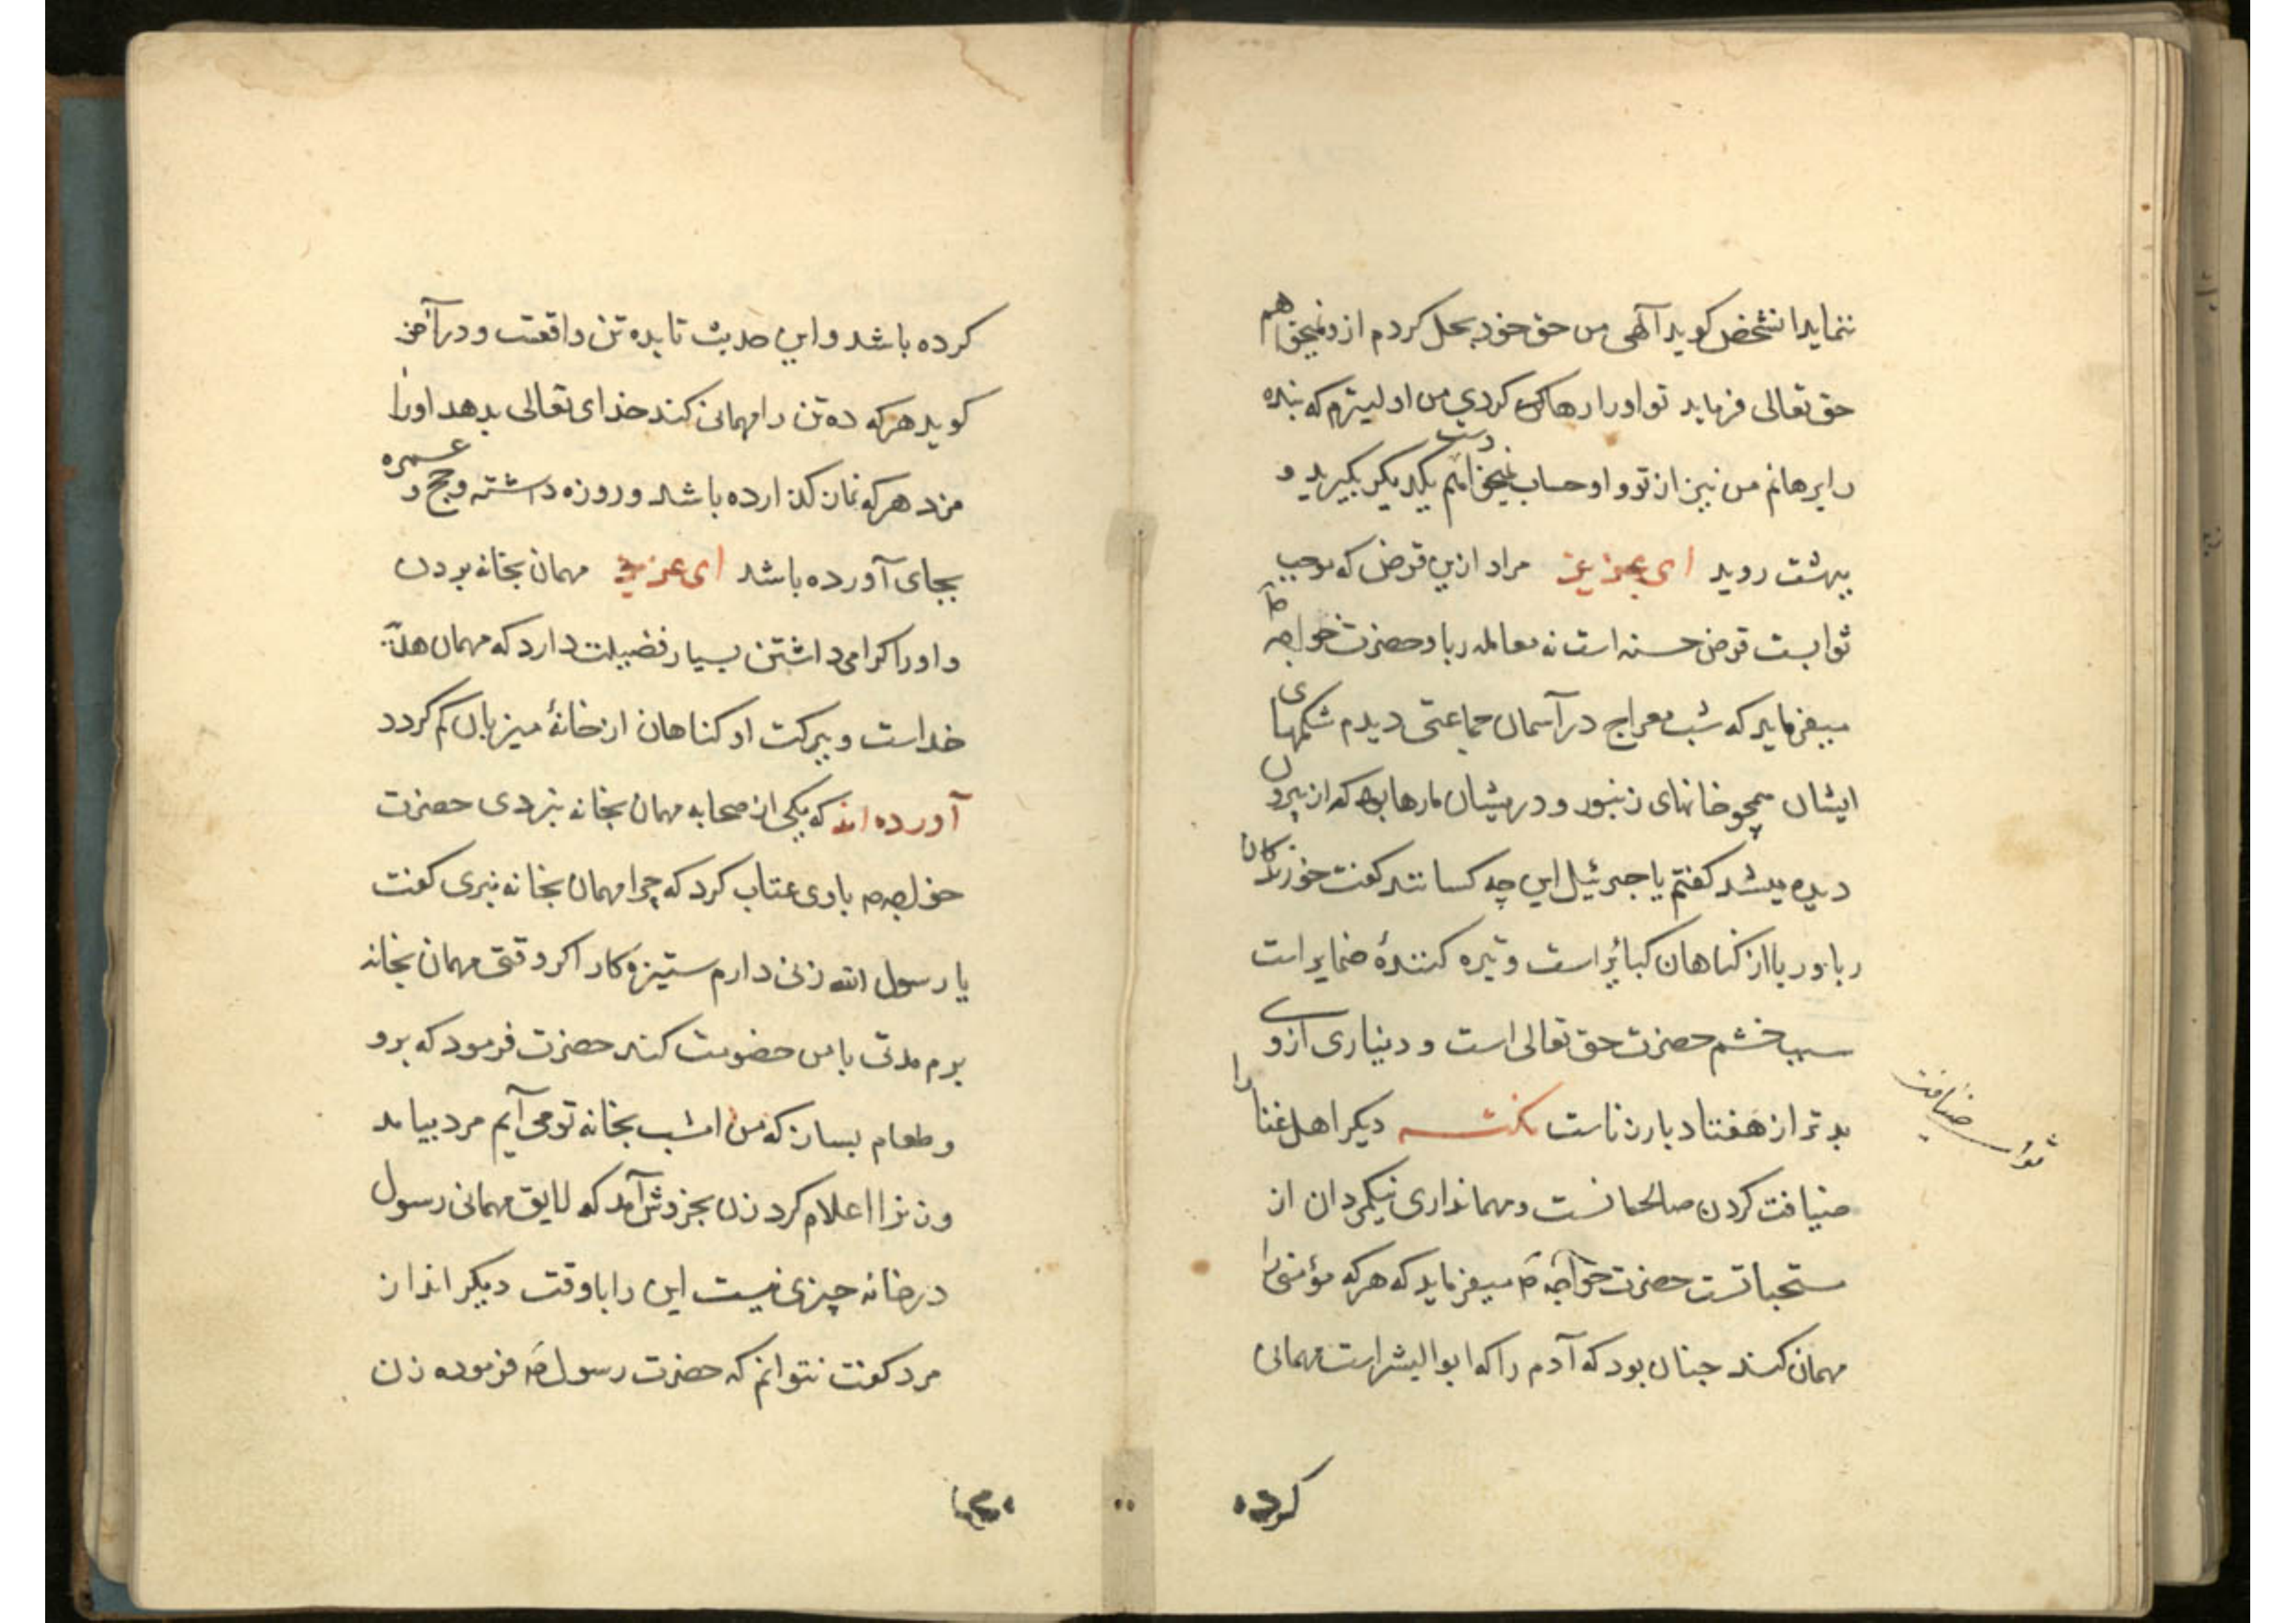 ننماید انشخص کوید آلهی من حق خود بحل کردم ازو نمیخواهم
حق تعالی فرماید تو او را رها کردی من اولیترم که بنده
را برهانم من نیز از تو و او حساب نمیخواهم دست یکدیکر بکیرید و
ببهشت روید ای عزیز مراد ازین قرض که موجب
ثوابست قرض حسنه است نه معامله ربا و حضرت خواجه ص
میفرماید که شب معراج در آسمان جماعتی دیدم شکمهای
ایشان همچو خانهای زنبور و درمیشان مارها که از بیرون
دیده میشد کفتم یا جبرئیل این چه کسانند کفت خورندکان
ربا و ربا از کناهان کبائر است و تیره کنندهٔ ضمایر است
سبب خشم حضرت حق تعالی است و دیناری ازوی
بدتر از هفتاد بار زناست دیکر اهل غنا را
ضیافت کردن صالحانست و مهمانداری نیکمردان از
مستحباتست حضرت خواجه ص میفرماید که هرکه مؤمنی را
مهمان کند چنان بود که آدم را که ابوالبشر است مهمانی
کرده
ثواب ضیافت
کرده باشد و این حدیث تا بده تن واقعت و در آخر
کوید هرکه ده تن را مهمانی کند خدای تعالی بدهد او را
مزد هرکه نماز کذارده باشد و روزه داشته و حج و عمره
بجای آورده باشد ای عزیز مهمان بخانه بردن
و او را کرامی داشتن بسیار فضیلت دارد که مهمان هدیّهٔ
خداست و ببرکت او کناهان از خانهٔ میزبان کم کردد
آورده اند که یکی از صحابه مهمان بخانه نبردی حضرت
خواجه ص باوی عتاب کرد که چرا مهمان بخانه نبری کفت
یا رسول الله زنی دارم ستیزه کار اکر وقتی مهمان بخانه
برم مدتی با من خصومت کند حضرت فرمود که برو
و طعام بساز که من امشب بخانه تو می آیم مرد بیامد
و زنرا اعلام کرد زن بخروش آمد که لایق مهمانی رسول
در خانه چیزی نیست این را با وقت دیکر انداز
مرد کفت نتوانم که حضرت رسول ص فرموده زن